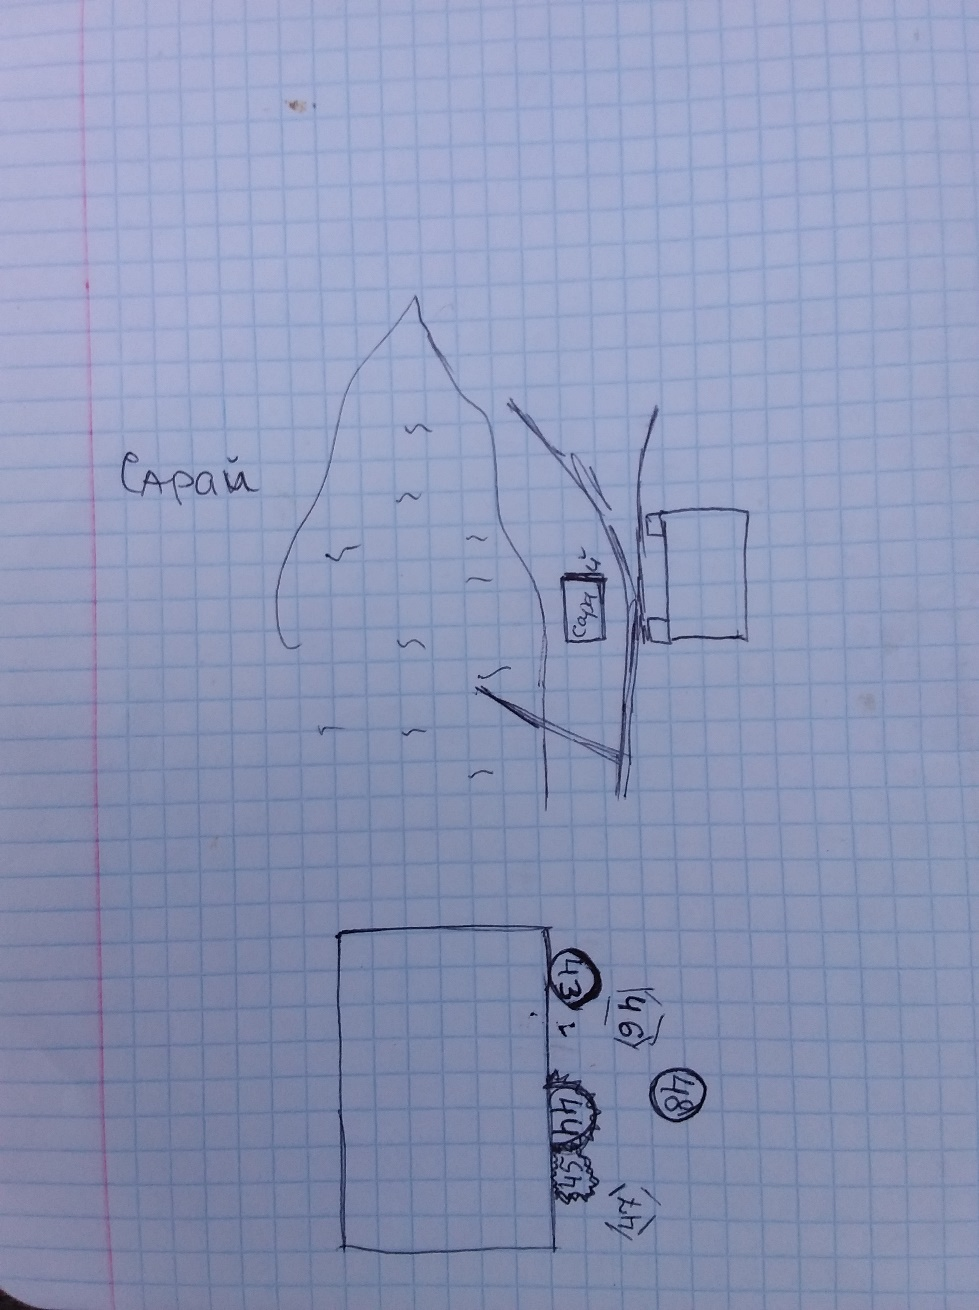 Сарай
Сарай
43
46
48
44
45
47